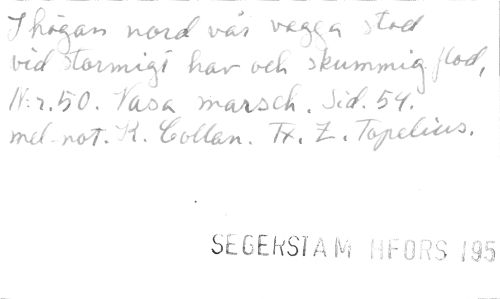 I högan nord vår vagga stod
vid stormigt hav och skummig flod,
N:r. 50. Vasa marsch. Sid. 54.
mel. not. K. Collan. Tx. Z. Topelius.
SEGERSTAM HFORS 195